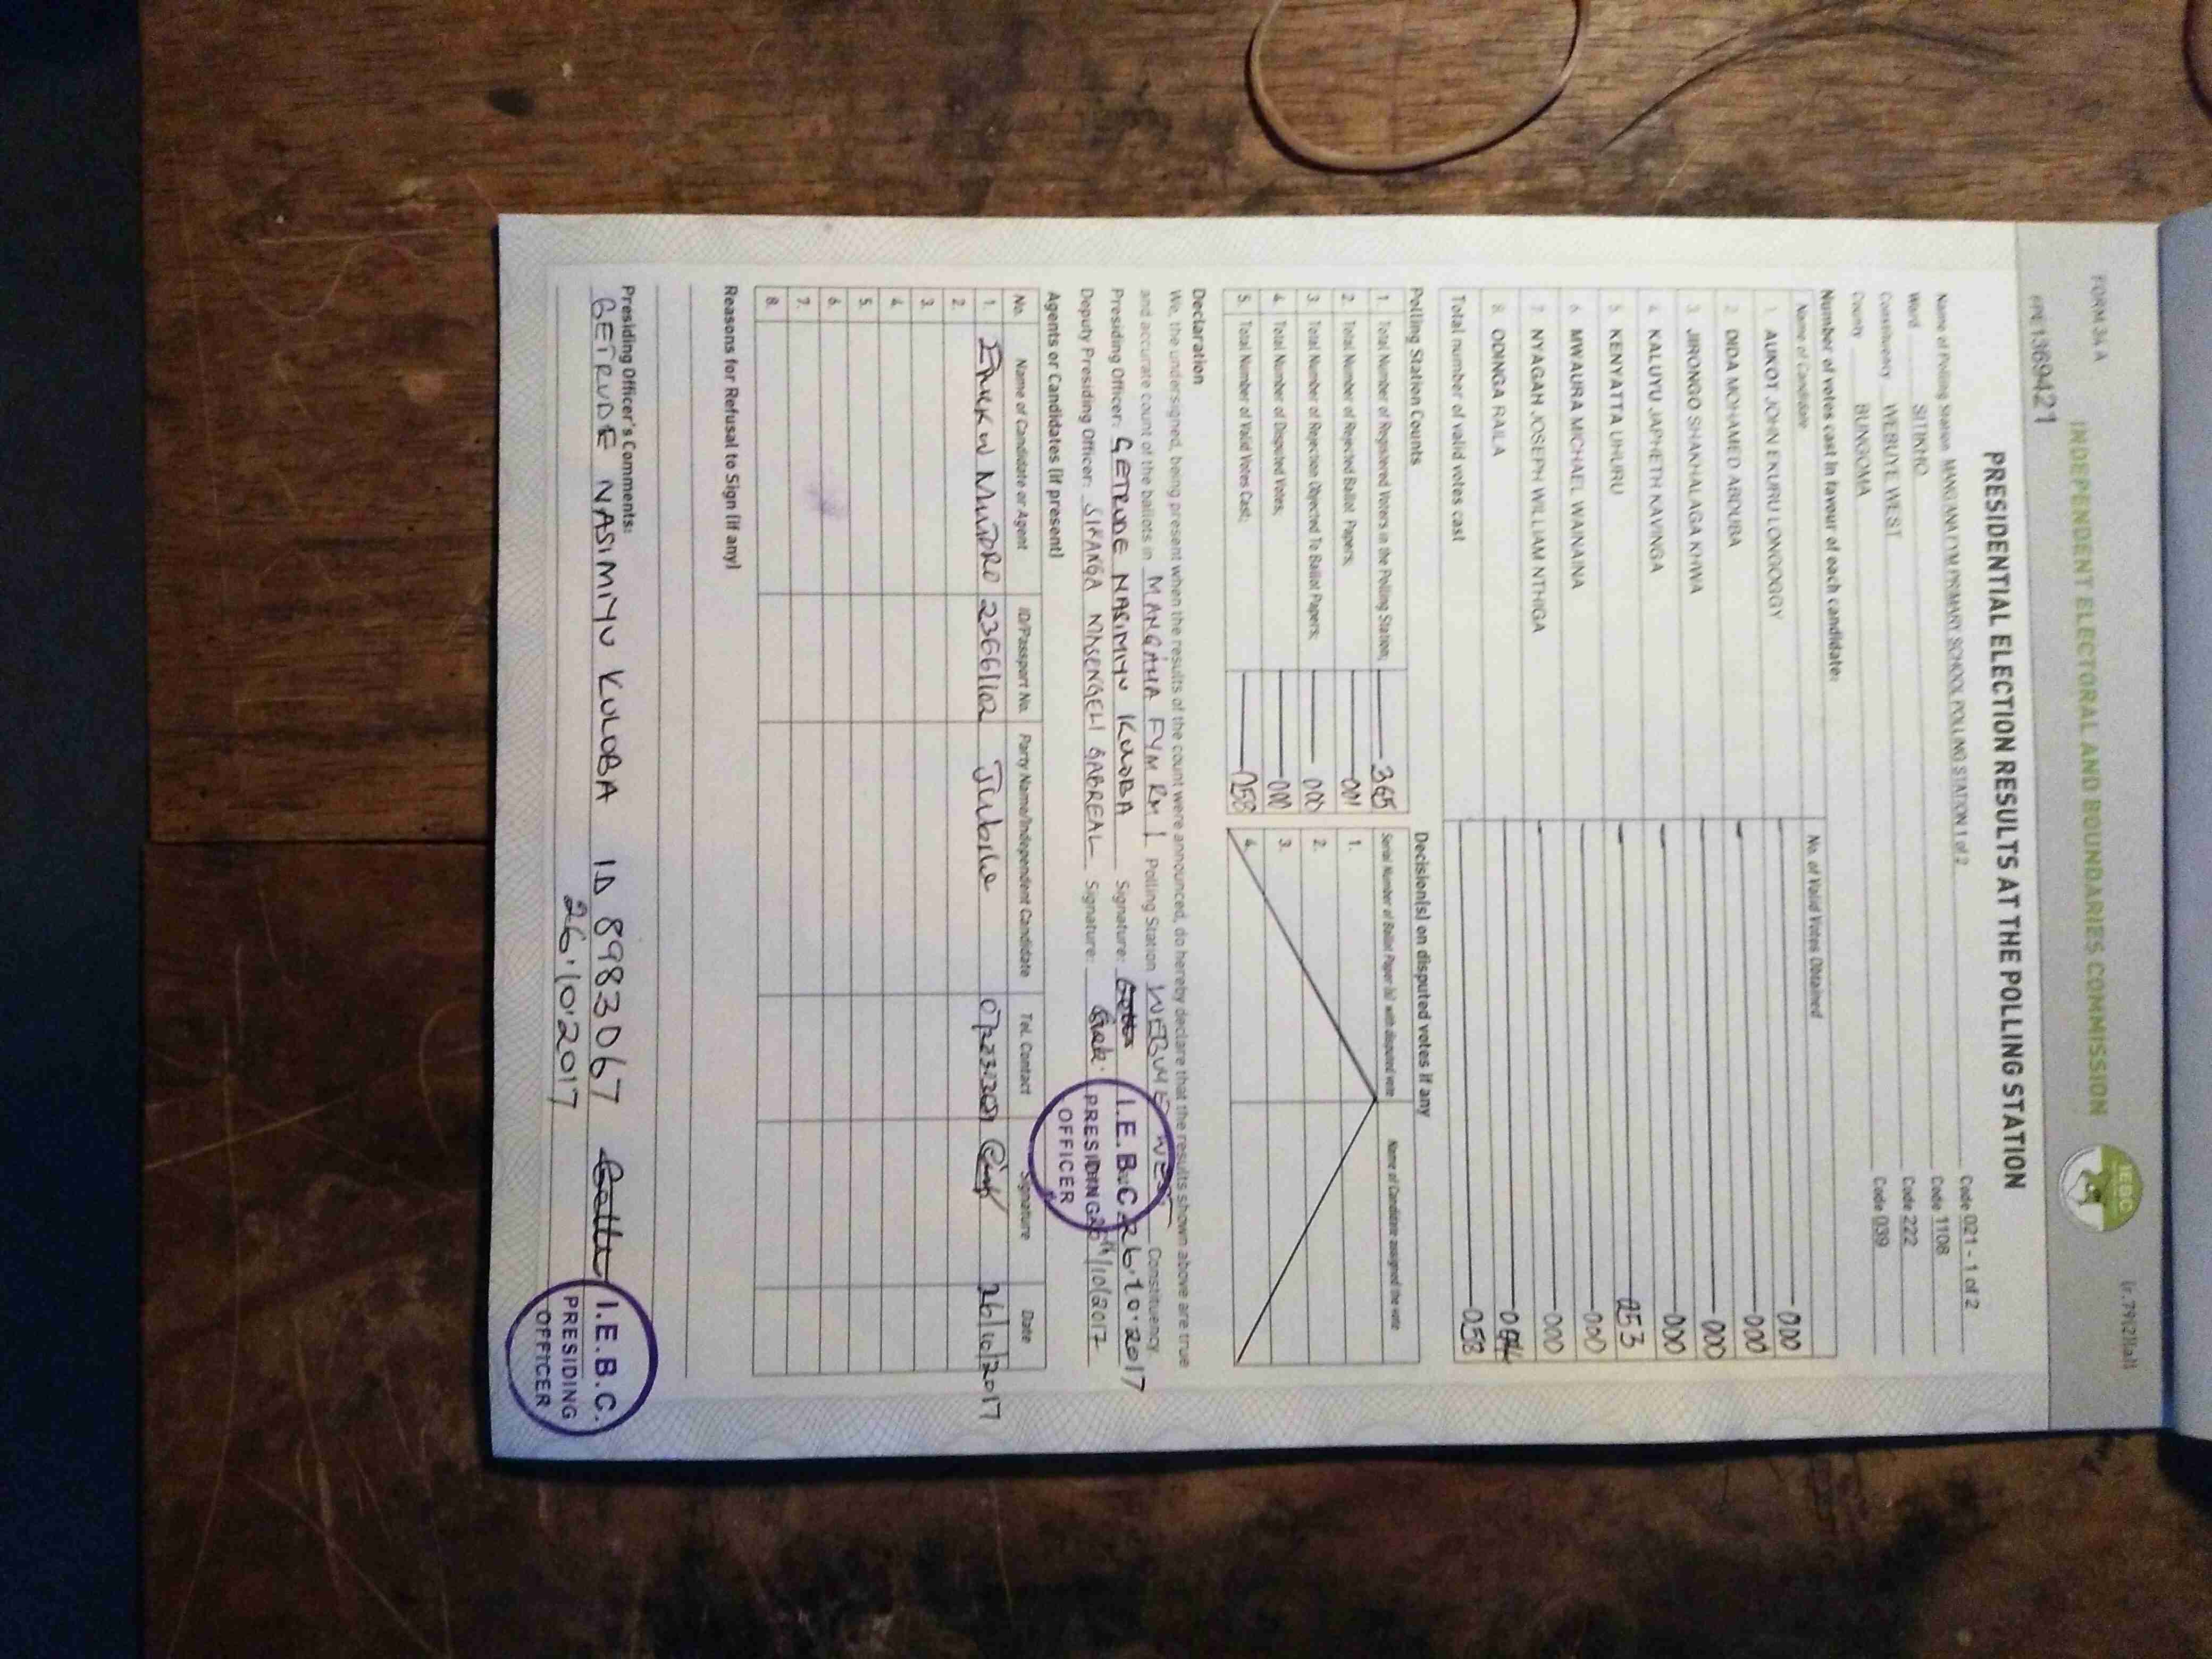 FORM 34 A
(r.79(2)(a))
INDEPENDENT ELECTORAL AND BOUNDARIES COMMISSION
IEBC
1369421
PRESIDENTIAL ELECTION RESULTS AT THE POLLING STATION
Name of Polling Station MANG'ANA FYM PRIMARY SCHOOL POLLING STATION 1 of 2 Code 021 - 1 of 2
Ward SITIKHO Code 1108
Constituency WEBUYE WEST Code 222
County BUNGOMA Code 039
Number of votes cast in favour of each candidate:
Name of Candidate No. of Valid Votes Obtained
1 AUKOT JOHN EKURU LONGOGGY 000
2 DIDA MOHAMED ABDUBA 000
3 JIRONGO SHAKHALAGA KHWA 000
4 KALUYU JAPHETH KAVINGA 000
5 KENYATTA UHURU 053
6 MWAURA MICHAEL WAINAINA 000
7 NYAGAH JOSEPH WILLIAM NTHIGA 000
8 ODINGA RAILA
Total number of valid votes cast 058
Polling Station Counts
1. Total Number of Registered Voters in the Polling Station; 365
2. Total Number of Rejected Ballot Papers; 001
3. Total Number of Rejection Objected To Ballot Papers; 000
4. Total Number of Disputed Votes; 000
5. Total Number of Valid Votes Cast; 058
Decision(s) on disputed votes if any
Serial Number of Ballot Paper (s) with disputed vote Name of Candidate assigned the vote
1.
2.
3.
4.
Declaration
We, the undersigned, being present when the results of the count were announced, do hereby declare that the results shown above are true
and accurate count of the ballots in MANG'ANA FYM RM 1 Polling Station WEBUYE WEST Constituency
Presiding Officer: GETRUDE NASIMIYU KULOBA Signature: 26.10.2017
Deputy Presiding Officer: SIKANGA Signature: 26/10/2017
I.E.B.C.
PRESIDING
OFFICER
Agents or Candidates (if present)
No. Name of Candidate or Agent ID/Passport No. Party Name/Independent Candidate Tel. Contact Signature Date
1. Jubilee 26/10/2017
2.
3.
4.
5.
6.
7.
8.
Reasons for Refusal to Sign (if any)
Presiding Officer's Comments:
GETRUDE NASIMIYU KULOBA ID 8983067
26.10.2017
I.E.B.C.
PRESIDING
OFFICER